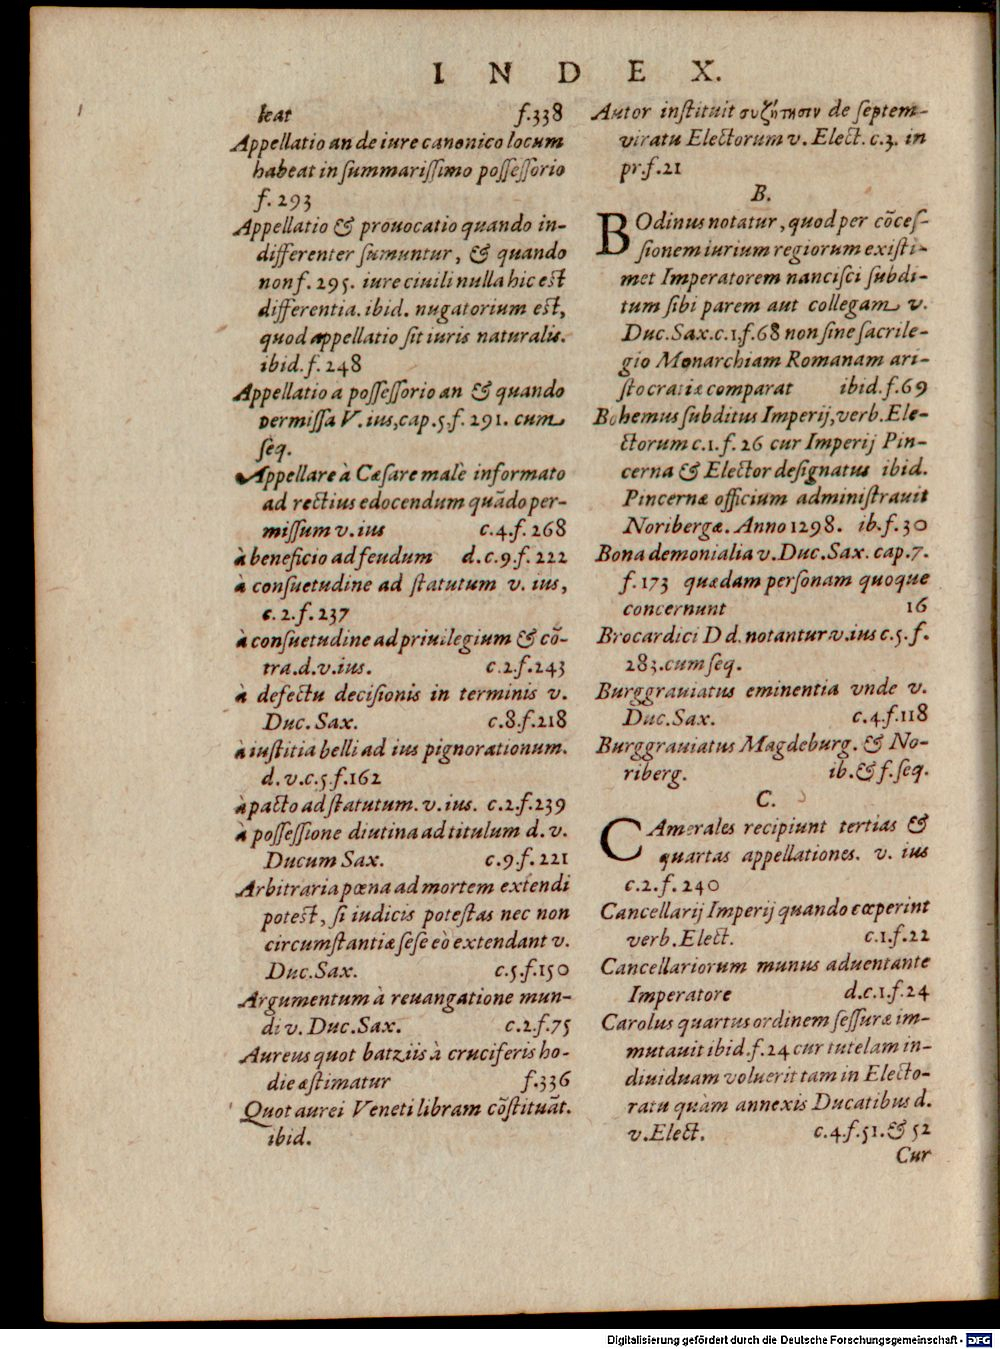 INDEX.
leat f.338
Appellatio an de iure canonico locum
habeat in summarissimo possessorio
f. 293
Appellatio & prouocatio quando in-
differenter sumuntur, & quando
non f. 295. iure ciuili nulla hic est
differentia. ibid. nugatorium est,
quod appellatio sit iuris naturalis.
ibid. f. 248
Appellatio a possessorio an & quando
permissa V. ius, cap. 5. f. 291. cum
seq.
Appellare à Cæsare male informato
ad rectius edocendum quãdo per-
missum v. ius c.4.f. 268
à beneficio ad feudum d.c.9.f. 222
à consuetudine ad statutum v. ius,
c.2.f.237
à consuetudine ad priuilegium & cõ-
tra.d.v.ius. c.2.f.243
à defectu decisionis in terminis v.
Duc. Sax. c.8.f.218
à iustitia belli ad ius pignorationum.
d.v.c.5.f.162
à pacto ad statutum. v. ius. c.2.f.239
à possessione diutina ad titulum d. v.
Ducum Sax. c.9.f.221
Arbitraria pœna ad mortem extendi
potest, si iudicis potestas nec non
circumstantiæ sese eò extendant v.
Duc.Sax. c.5.f.150
Argumentum à reuangatione mun-
di v. Duc.Sax. c.2.f.75
Aureus quot batziis à cruciferis ho-
die æstimatur f.336
Quot aurei Veneti libram cõstituãt.
ibid.
Autor instituit συζήτησιν de septem-
viratu Electorum v. Elect. c.3. in
pr.f.21
B.
BOdinus notatur, quod per cõces-
sionem iurium regiorum existi-
met Imperatorem nancisci subdi-
tum sibi parem aut collegam v.
Duc.Sax.c.1.f.68 non sine sacrile-
gio Monarchiam Romanam ari-
stocratiæ comparat ibid.f.69
Bohemus subditus Imperij, verb. Ele-
ctorum c.1.f. 26 cur Imperij Pin-
cerna & Elector designatus ibid.
Pincernæ officium administrauit
Noribergæ. Anno 1298. ib. f. 30
Bona demonialia v. Duc. Sax. cap.7.
f. 173 quædam personam quoque
concernunt 16
Brocardici D d. notantur v.ius c.5.f.
283.cum seq.
Burggrauiatus eminentia vnde v.
Duc.Sax. c.4.f.118
Burggrauiatus Magdeburg. & No-
riberg. ib. & f.seq.
C.
CAmerales recipiunt tertias &
quartas appellationes. v. ius
c.2.f. 240
Cancellarij Imperij quando cœperint
verb. Elect. c.1.f.22
Cancellariorum munus aduentante
Imperatore d.c.1.f.24
Carolus quartus ordinem sessuræ im-
mutauit ibid.f.24 cur tutelam in-
diuiduam voluerit tam in Electo-
ratu quàm annexis Ducatibus d.
v.Elect. c.4.f.51.& 52
Cur
Digitalisierung gefördert durch die Deutsche Forschungsgemeinschaft - DFG